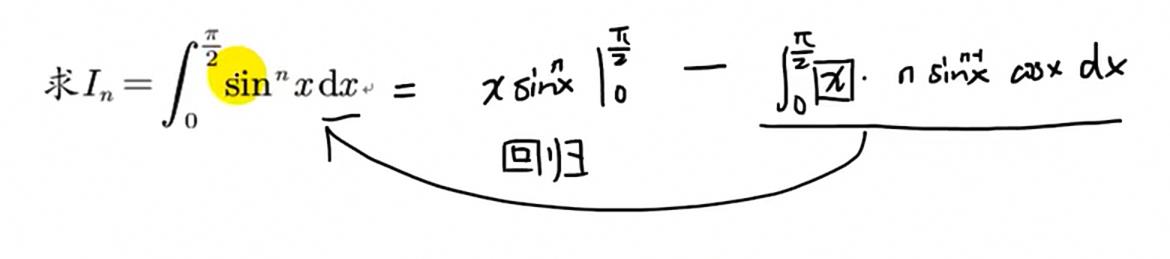 求 Iₙ = ∫₀^{π/2} sinⁿ x dx = x sinⁿx |₀^{π/2} − ∫₀^{π/2} x · n sinⁿ⁻¹x cosx dx
回归